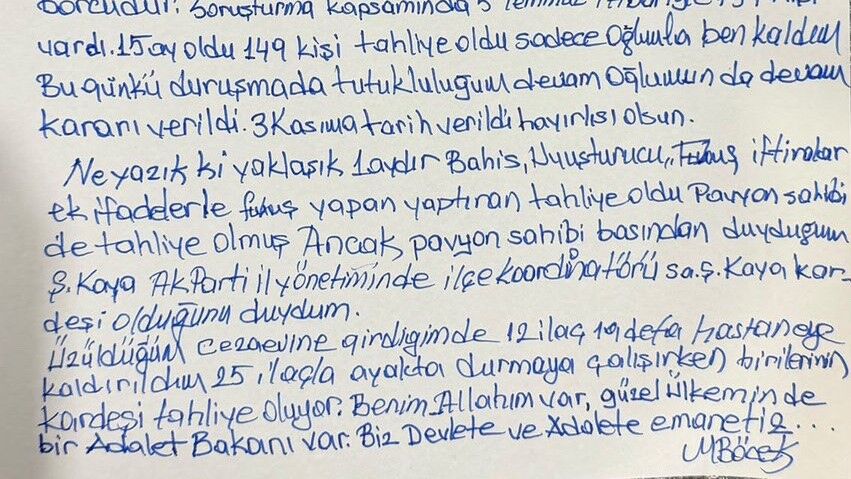 borcudur. Soruşturma kapsamında 5 Temmuz
vardı. 15 ay oldu 149 kişi tahliye oldu sadece Oğlumla ben kaldım
Bugünkü duruşmada tutukluluğum devam Oğlumun da devam
kararı verildi. 3 Kasıma tarih verildi hayırlısı olsun.
Ne yazık ki yaklaşık 1 aydır Bahis, Uyuşturucu, Fuhuş iftiralar
ek ifadelerle fuhuş yapan yaptıran tahliye oldu Pavyon sahibi
de tahliye olmuş Ancak pavyon sahibi basından duyduğum
Ş. Kaya Ak Parti il yönetiminde ilçe koordinatörü sa.ş. Kaya kar-
deşi olduğunu duydum.
Üzüldüğüm cezaevine girdiğimde 12 ilaç 19 defa hastaneye
kaldırıldım 25 ilaçla ayakta durmaya çalışırken birilerinin
kardeşi tahliye oluyor. Benim Allahım var, güzel Ülkemin de
bir Adalet Bakanı var. Biz Devlete ve Adalete emanetiz...
MBöcek